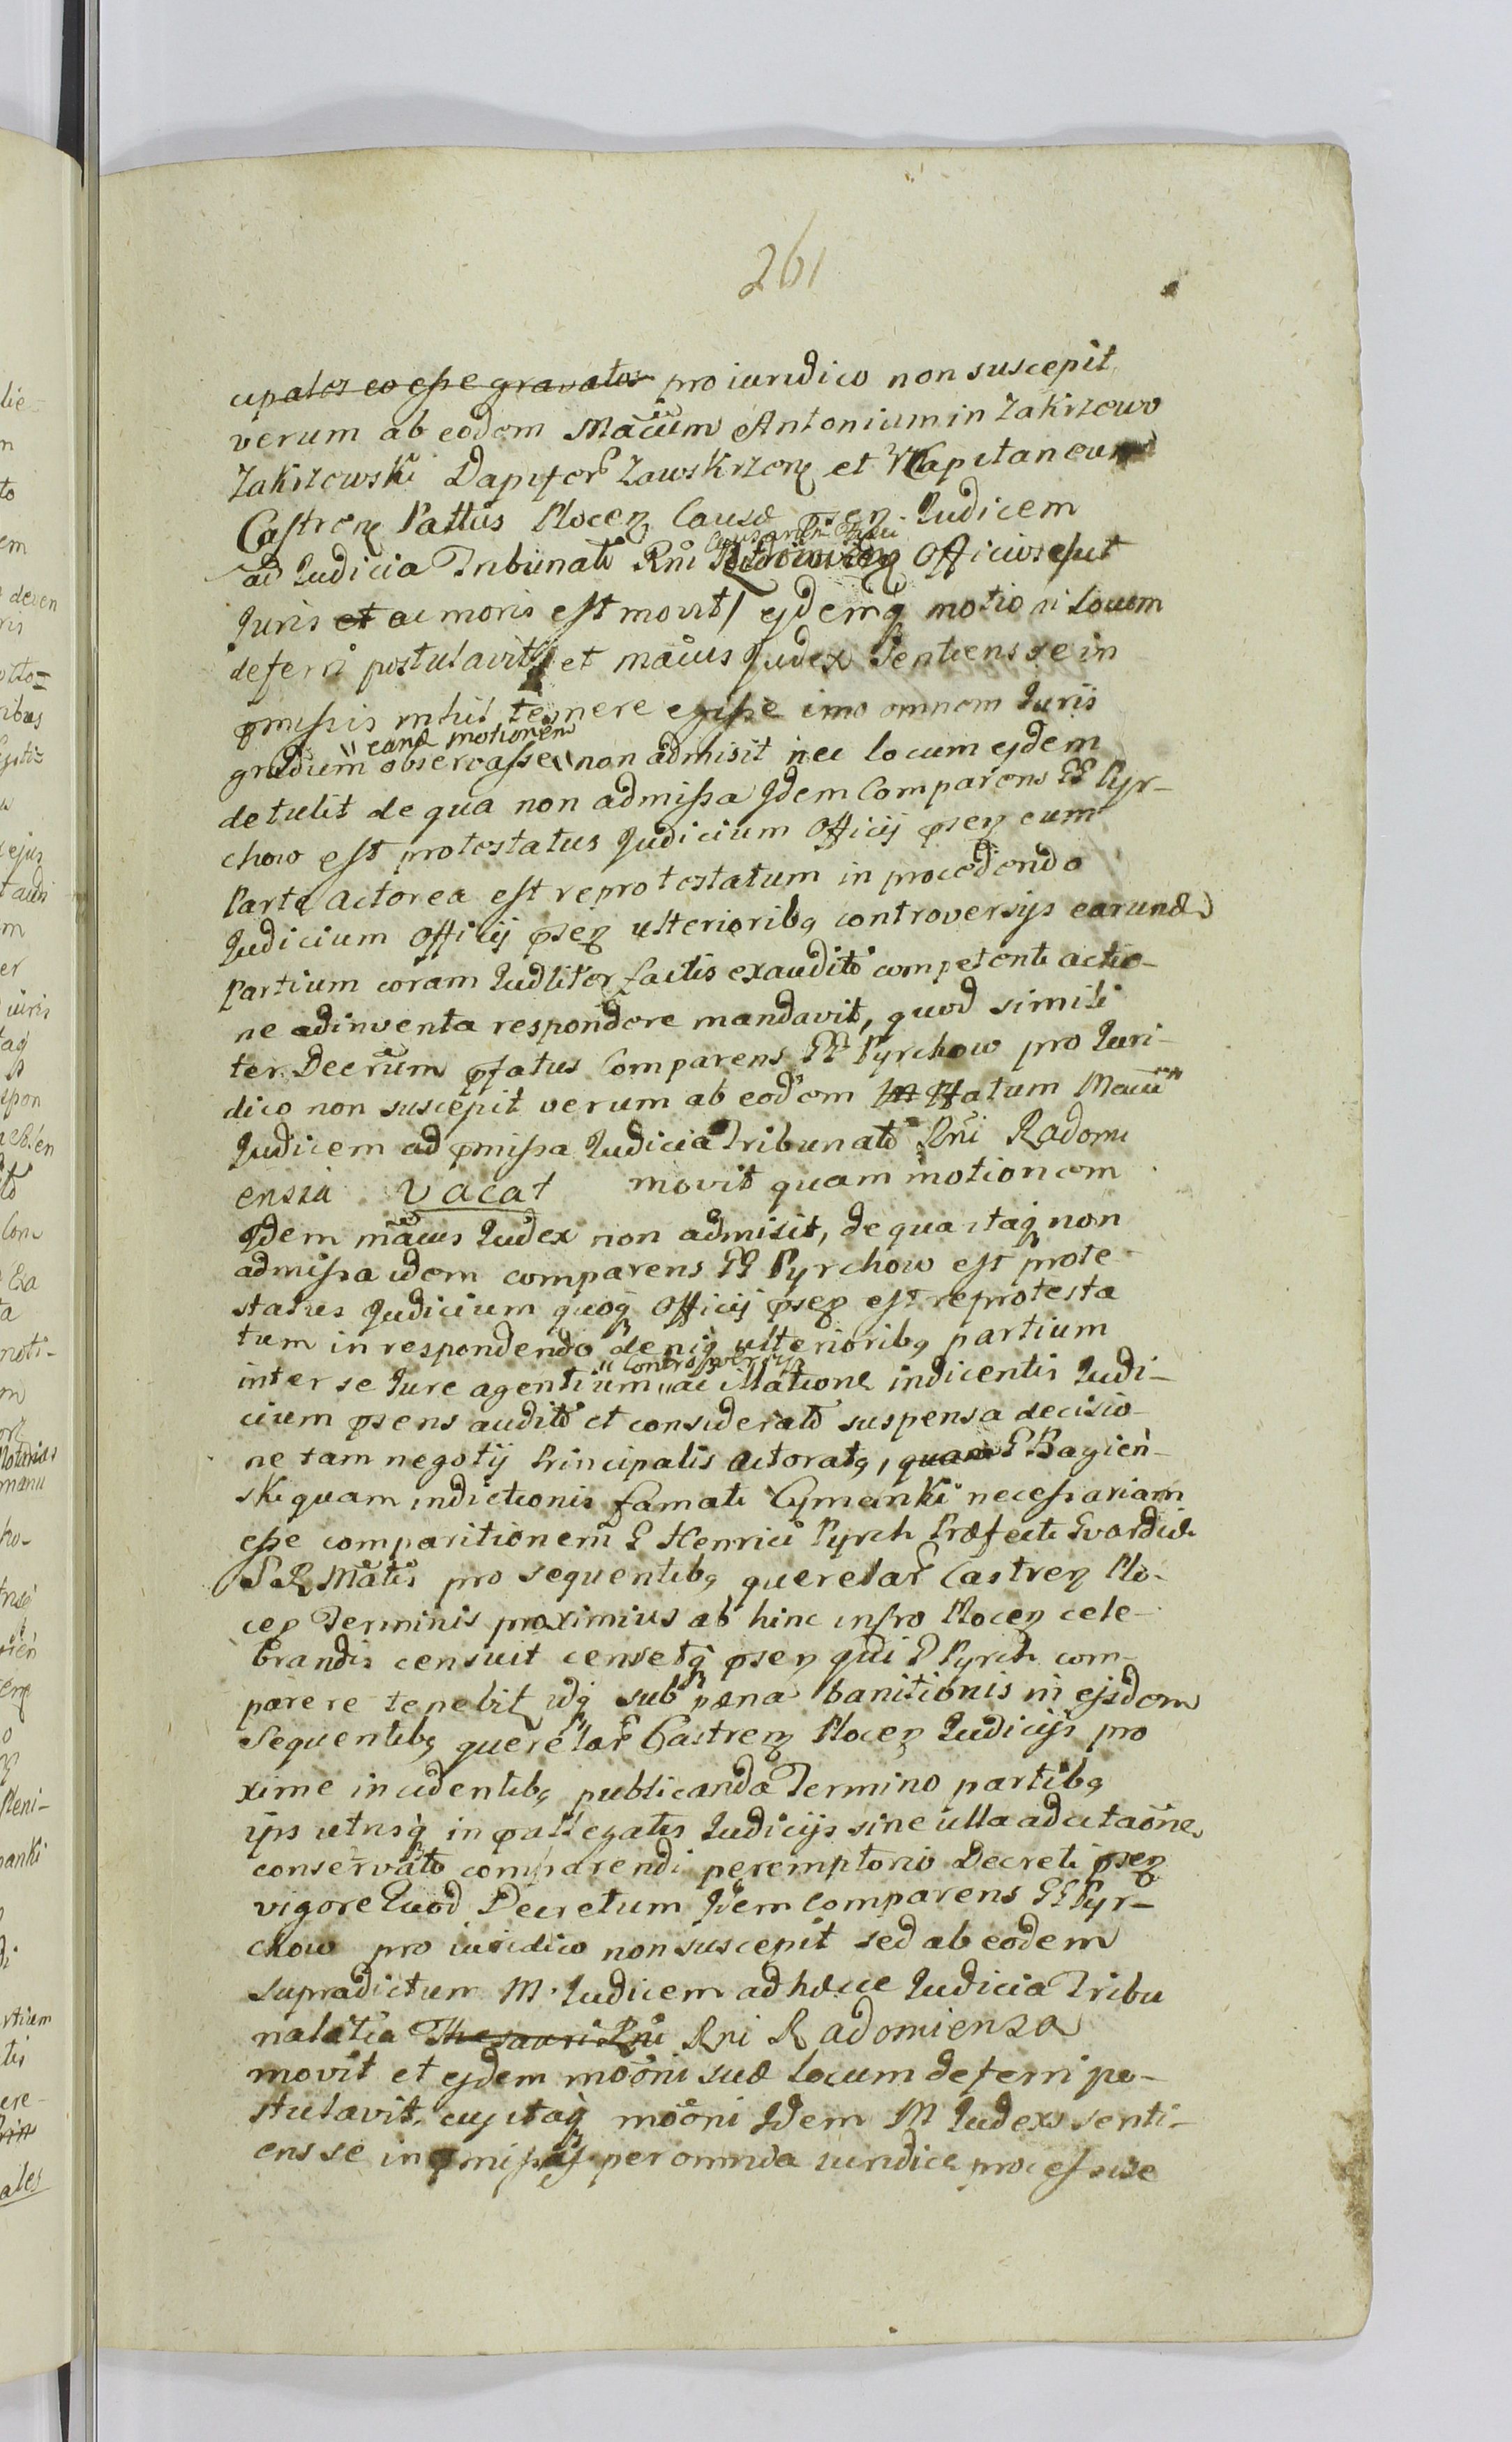 261
cipales eo esse gravatos pro iuridico non suscepit
verum ab eodem Mãcum Antonium in Zakrzewo
Zakrzewski Dapifer Zawskrzen et VCapitaneum
Castren Pattus Plocen Causæ psen Judicem
ad Judicia Tribunalt Rni Officiose ut
Juris et ac moris est movit ejdemq motioni locum
deferri postulavit et mãcus Judex Sentiens se in
pmissis nihil temere egisse imo omnem Juris
" eand motionem
gradum observasse " non admisit nec locum ejdem
detulit de qua non admissa Idem Comparens GG Pyr-
chow est protestatus Judicium Officij psen cum
Parte Actorea est reprotestatum in procedendo
Judicium Officij psen ulterioribq controversijs earund
Partium coram Judliter factis exauditi competenti actio-
ne adinventa respondere mandavit, quod simili
ter Decrum pfatus Comparens GG Pyrchow pro Juri-
dico non suscepit verum ab eodem pfatum Mãcum
Judicem ad pmissa Judicia Tribunalt Rni Radomi
ensia vacat movit quam motionem
Idem mãcus Judex non admisit, de qua itaq non
admissa idem comparens GG Pyrchow est prote
status Judicium quoq Officij psen est reprotesta
tum in respondendo deniq ulterioribq partium
" Controversijs
inter se Jure agentium " ac illatione indicentis Judi-
cium psens audito et considerato suspensa decisio
ne tam negotij Principalis Actoratq, quam G Bagień-
ski quam indictionis famati Cymanki necessariam
esse comparitionem G Henrici Pyrch Præfecti Gvardiæ
S R Mãtis pro sequentibq querelar Castren Plo-
cen Terminis proximius ab hinc in foro Plocen cele-
brandis censuit censetq psen qui G Pyrch com-
parere tenebit idq sub pæna banitionis in ejsdem
Sequentibq querelar Castren Plocen Judicijs pro
xime incidentibq publicanda Termino partibq
ijs utrisq in pallegatis Judicijs sine ulla adcitaõne
conservato comparendi peremptorio Decreti psen
vigore Quod Decretum Idem Comparens GG Pyr-
chow pro iuridico non suscepit sed ab eodem
supradictum M. Judicem ad hæcce Judicia Tribu
nalitia Thesauri Rni Rni Radomiensa
movit et ejdem moõni suæ locum deferri po-
stulavit, cuj itaq moõni Idem M Judex senti-
ens se in pmissis per omnia iuridice processisse